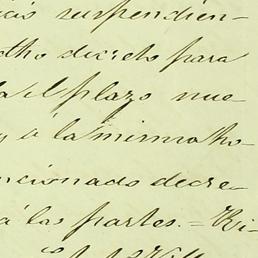 suspendien-
dho decreto para
el plazo nue-
y á la misma ho-
ncionado decre-
á las partes. = Ri-